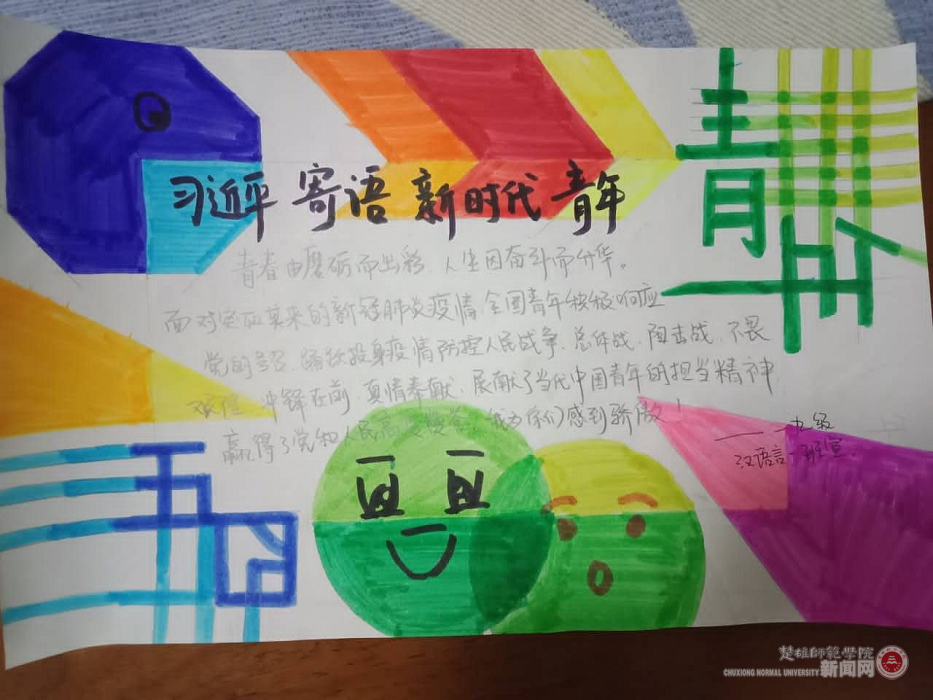 习近平 寄语 新时代 青年
青春由磨砺而出彩 人生因奋斗而升华。
面对突如其来的新冠肺炎疫情 全国青年积极响应
党的号召 踊跃投身疫情防控人民战争、总体战、阻击战、不畏
艰险、冲锋在前、真情奉献、展献了当代中国青年的担当精神
赢得了党和人民高度赞誉、我为你们感到骄傲！
—— 一九级
汉语言一班宣
青
年
五
四
楚雄師範學院
CHUXIONG NORMAL UNIVERSITY 新闻网